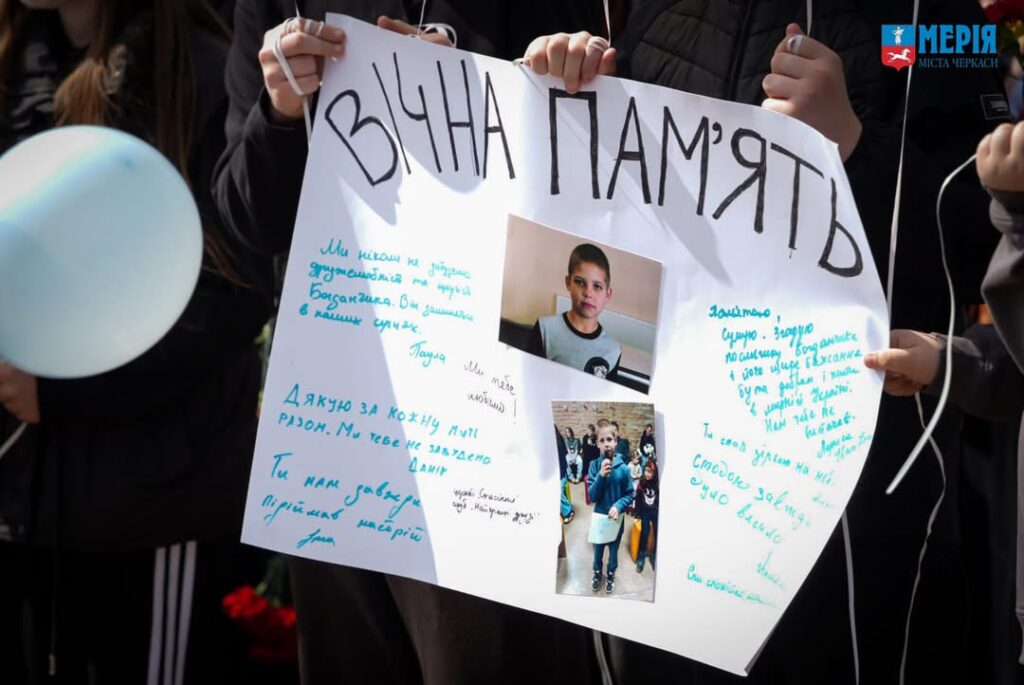 МЕРІЯ
МІСТА ЧЕРКАСИ
ВІЧНА ПАМ'ЯТЬ
Ми ніколи не забудемо
дружелюбність та щирість
Богданчика. Він залишився
в наших серцях.
Паула
Ми тебе
любимо!
ДЯКУЮ ЗА КОЖНУ МИТЬ
РАЗОМ. МИ ТЕБЕ НЕ ЗАБУДЕМО
ДАНІК
Ти нам завжди
піріймав настрій
церква Спасіння
клуб „Найкращі друзі"
Памʼятаю
сумую. Згадую
посмішку Богданчика
і його щире бажання
бути добрим і жити
в мирній Україні.
Нам тебе не
вистачає.
Ти став зіркою на неб
стобою завжди
було весело
Спи спокійно